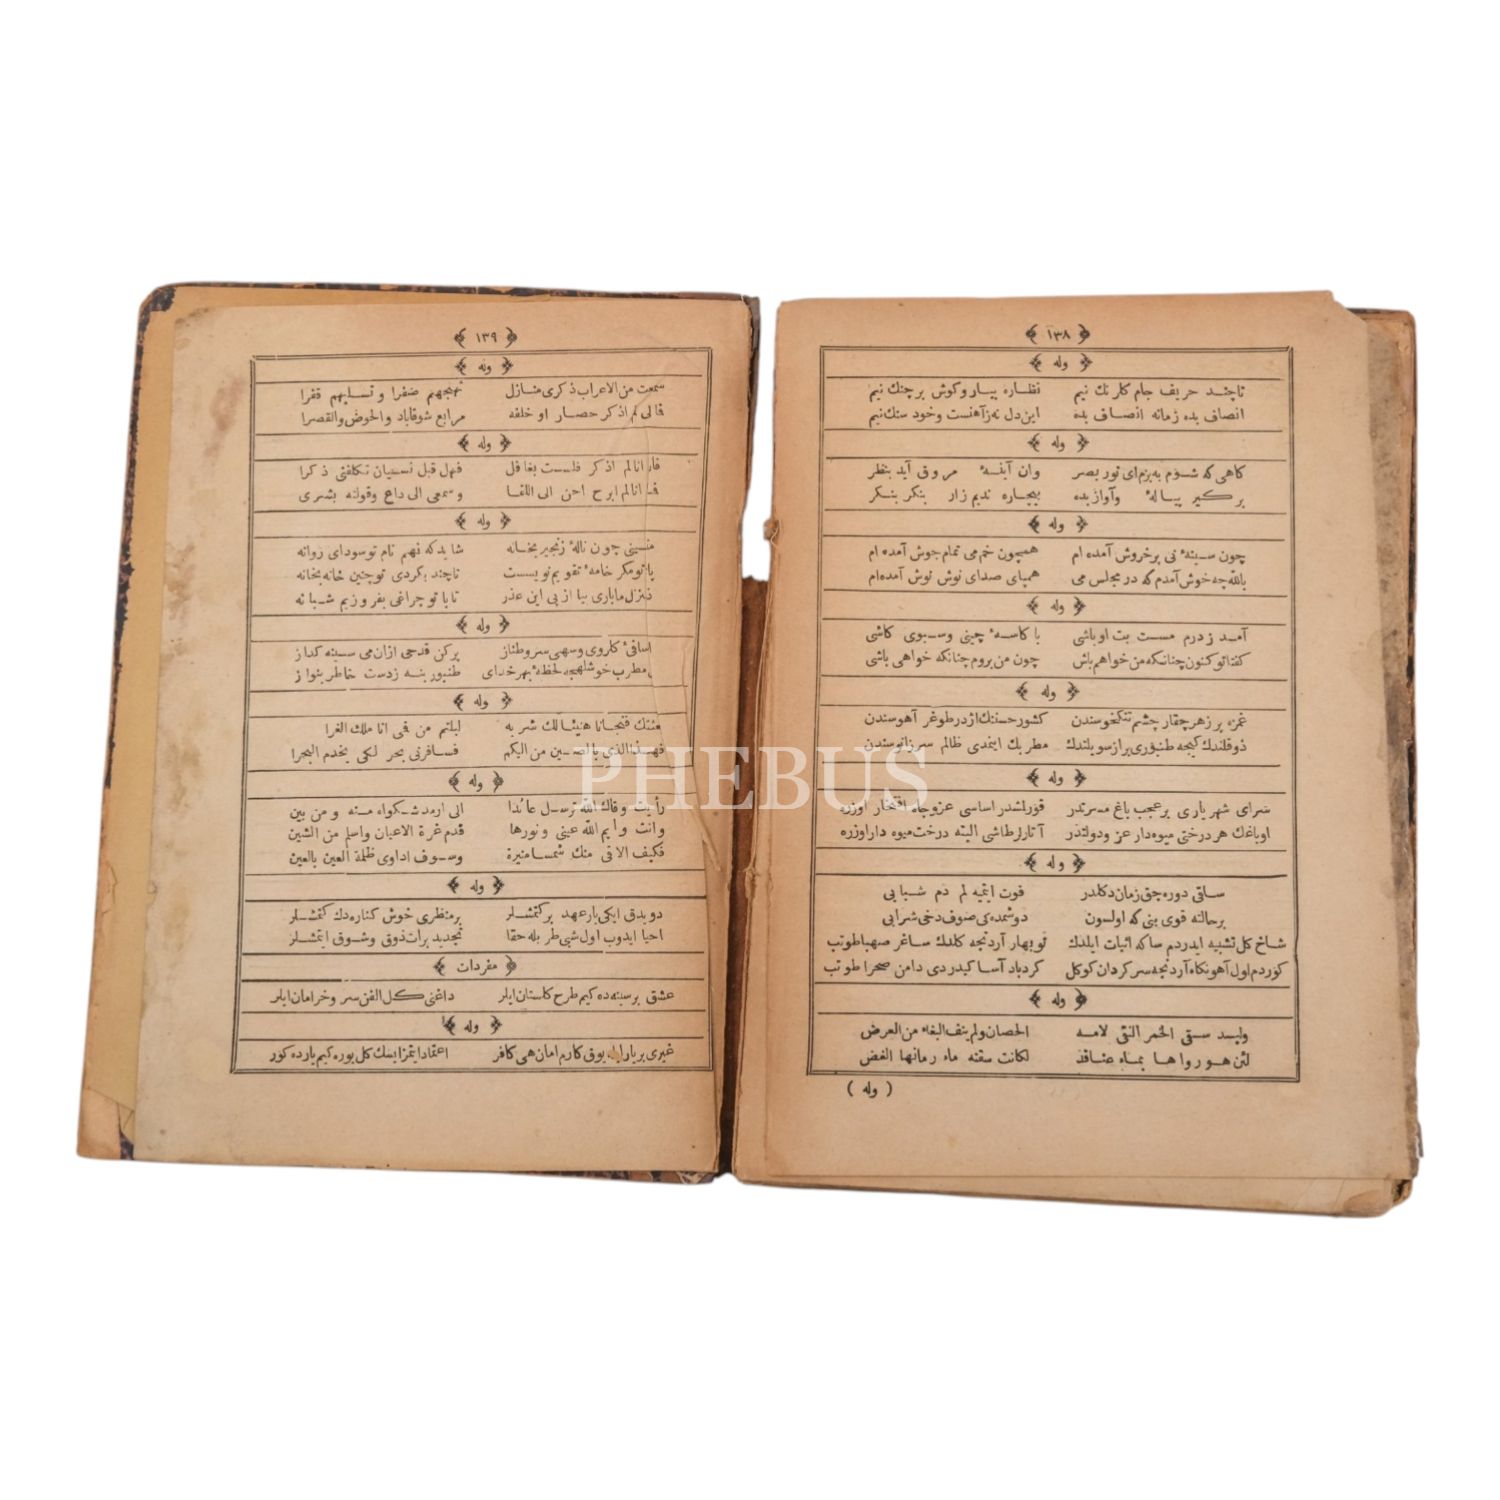 ﴿ ١٣٨ ﴾
﴿ وله ﴾
تاچند حریف جام کلرنك نیم نظاره بیار وکوش برچنك نیم
انصاف بده زمانه انصاف بده این دل نه زآهنست وخود سنك نیم
﴿ وله ﴾
کاهی که شوم به بزم ای نور بصر وان آینهٔ مروق آید بنظر
برکیر پیالهٔ وآواز بده بیچاره ندیم زار بنکر بنکر
﴿ وله ﴾
چون سینهٔ نی پرخروش آمده ام همچون خم می تمام جوش آمده ام
بالله چه خوش آمدم که در مجلس می همپای صدای نوش نوش آمده ام
﴿ وله ﴾
آمد ز درم مست بت اوباشی با کاسهٔ چینی وسبوی کاشی
کفتا تو کنون چنانکه من خواهم باش چون من بروم چنانکه خواهی باشی
﴿ وله ﴾
غمزه پر زهر چقار چشم تنکخوسندن کشور حسنك اژدر طوغر آهوسندن
ذوقلندك کیجه طنبوری پراز سویلندك مطربك اینمدی ظالم سر زانوسندن
﴿ وله ﴾
سرای شهریاری پرعجب باغ مسرتدر قورلشدر اساسی عزوجاه افتخار اوزره
اوباغك هر درختی میوه دار عز ودولتدر آتارلر طاشی البته درخت میوه دار اوزره
﴿ وله ﴾
ساقی دوره چق زمان دکلدر فوت ایتمیه لم دم شبابی
برحالته قوی بنی که اولسون دوشمده کی صوف دخی شرابی
شاخ کل تشبیه ایدردم ساکه اثبات ایلدك نوبهار آردنجه کلدك ساغر صهبا طوتب
کوردم اول آهونکاه آردنجه سرکردان کوکل کردباد آسا کیدردی دامن صحرا طوتب
﴿ وله ﴾
وليد سقى الخمر النقي لامه الحصان ولم ينف البغاء من العرض
لئن هو رواها بماء عناقد لكانت سقته ماء رمانها الغض
( وله )
﴿ ١٣٩ ﴾
﴿ وله ﴾
سمعت من الاعراب ذكرى منازل تهيجهم ضفرا و تسليهم قفرا
فالى لم اذكر حصار او خلفه مرابع شوقاباد والحوض والقصرا
﴿ وله ﴾
فان انا لم اذكر فلست بغافل فهل قبل نسيان تكلفتى ذكرا
فان انا لم ابرح احن الى اللقا وسمعى الى داع وقولته بشرى
﴿ وله ﴾
چون نالهٔ زنجیر بخانه شاید که نهم نام تو سودای روانه
یا تو مکر خامهٔ تقویم نویست تاچند بکردی تو چنین خانه بخانه
بیا از پی این عذر تا با تو چراغی بفروزیم شبانه
﴿ وله ﴾
ساقئ کلروی وسهی سرو طناز پرکن قدحی ازان می سینه کداز
مطرب خوشلهجه لحظهٔ بهر خدای طنبور بنه زدست خاطر بنواز
﴿ وله ﴾
فنجانا هنيئا لك شربه لبلتم من فمى انا ملك الغرا
فهذا الذى بالصين من اليكم فسافرنى بحر لكى يخدم البحرا
﴿ وله ﴾
رأيت وقاك الله ترسل عائدا الى ارمد شكواه منه و من بين
وانت وايم الله عينى ونورها قدم غرة الاعيان واسلم من الشين
فكيف الاقى منك شمسا منيرة وسوف اداوى ظلمة العين بالعين
﴿ وله ﴾
دوبدق ایکی یار عهد برکتمشلر برمنظری خوش کناره دك کتمشلر
احیا ایدوب اول شبی طربله حقا تجدید برات ذوق وشوق ایتمشلر
﴿ مفردات ﴾
عشق برسینه ده کیم طرح کلستان ایلر داغنی کل الفن سر وخرامان ایلر
﴿ وله ﴾
غیری بر یار یوق کارم امان هی کافر اعتماد ایتمزایسك کل بوره کیم یارده کور
PHEBUS